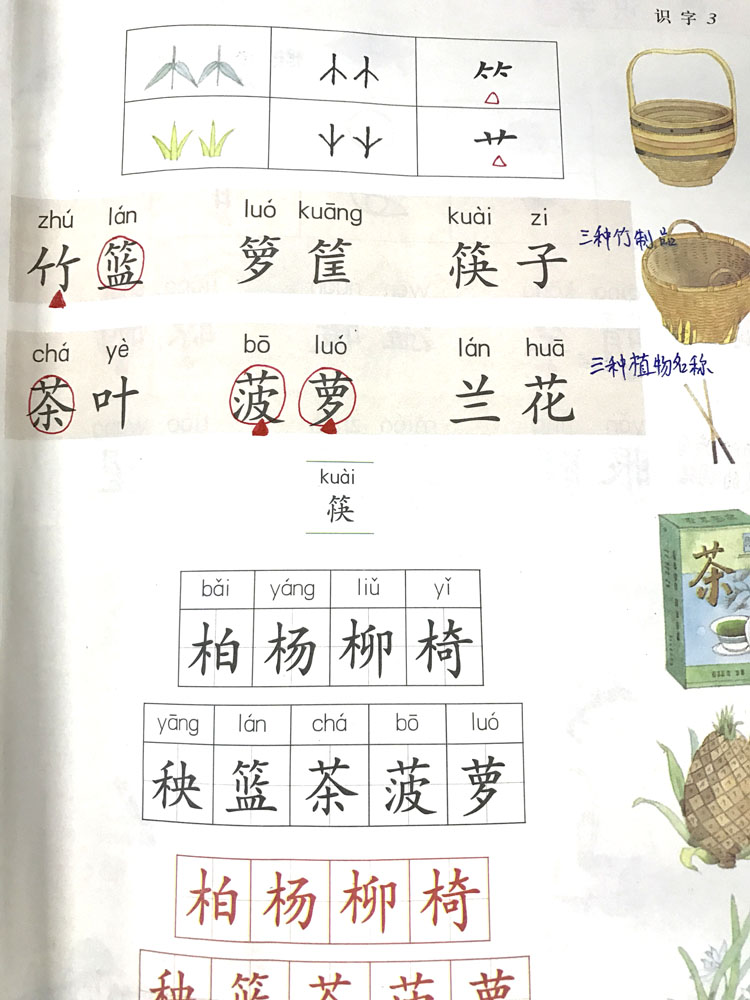 识字3
⺮
艹
zhú lán luó kuāng kuài zi
竹篮 箩筐 筷子 三种竹制品
chá yè bō luó lán huā
茶叶 菠萝 兰花 三种植物名称
kuài
筷
茶
bǎi yáng liǔ yǐ
柏 杨 柳 椅
yāng lán chá bō luó
秧 篮 茶 菠 萝
柏 杨 柳 椅
秧 篮 茶 菠 萝